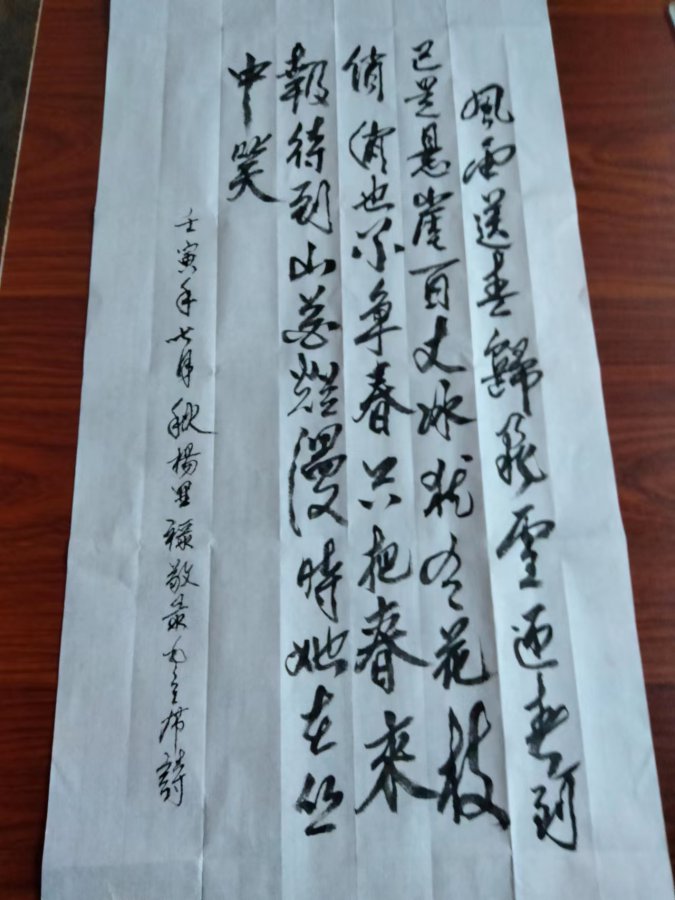 風雨送春歸飛雪迎春到
已是悬崖百丈冰犹有花枝
俏俏也不争春只把春来
報待到山花爛漫時她在丛
中笑
壬寅年七月秋楊里禄敬录毛主席詩